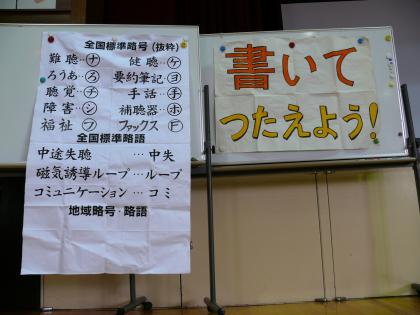 全国標準略号(抜粋)
難聴‥㋤ 健聴‥㋘
ろうあ‥ろ 要約筆記‥㋵
聴覚‥㋠ 手話‥手
障害‥㋛ 補聴器‥㋭
福祉‥㋫ ファックス‥F
全国標準略語
中途失聴 … 中失
磁気誘導ループ … ループ
コミュニケーション … コミ
地域略号・略語
書いて
つたえよう!